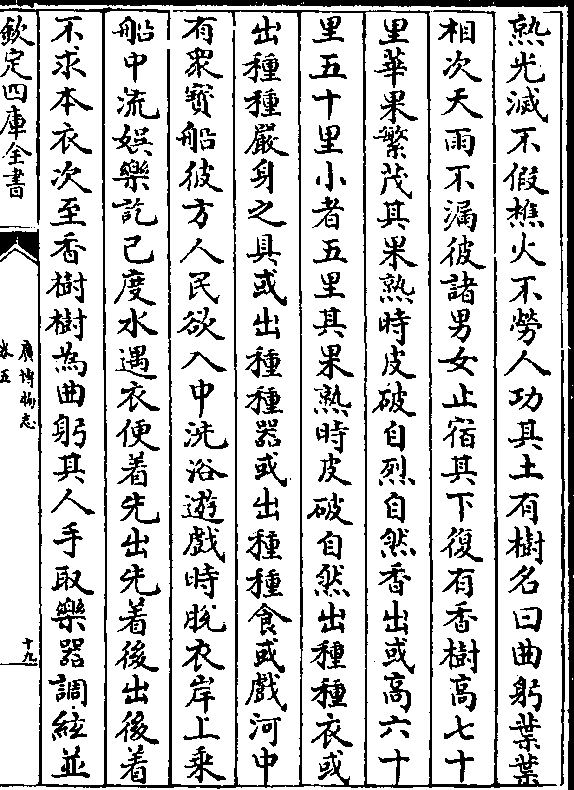 熟光滅不假樵火不勞人功其土有樹名曰曲躬葉葉
相次天雨不漏彼諸男女止宿其下復有香樹高七十
里華果繁茂其果熟時皮破自烈自然香出或髙六十
里五十里小者五里其果熟時皮破自然出種種衣或
出種種嚴身之具或出種種器或出種種食或戲河中
有衆寳船彼方人民欲入中洗浴遊戲時脫衣岸上乘
船中流娯樂訖已度水遇衣便着先出先着後出後着
不求本衣次至香樹樹為曲躬其人手取樂器調絃並
欽定四庫全書
廣博物志
卷五
十九